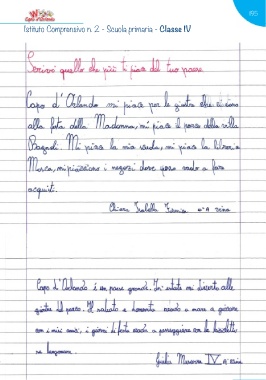 195
Istituto Comprensivo n. 2 - Scuola primaria - Classe IV
Scrivi quello che più ti piace del tuo paese
Capo d'Orlando mi piace per le giostre che ci sono
alla festa della Madonna, mi piace il parco della villa
Bagnoli. Mi piace la mia scuola, mi piace la libreria
Mosca, mi piacciono i negozi dove posso andare a fare
acquisti.
Chiara
Capo d'Orlando è un paese grande. In estate mi diverto alle
giostre del parco. Il sabato e domenica vado a mare a giocare
con i miei amici, i giorni di festa vado a passeggiare con la
sul lungomare.
Giulia IV A